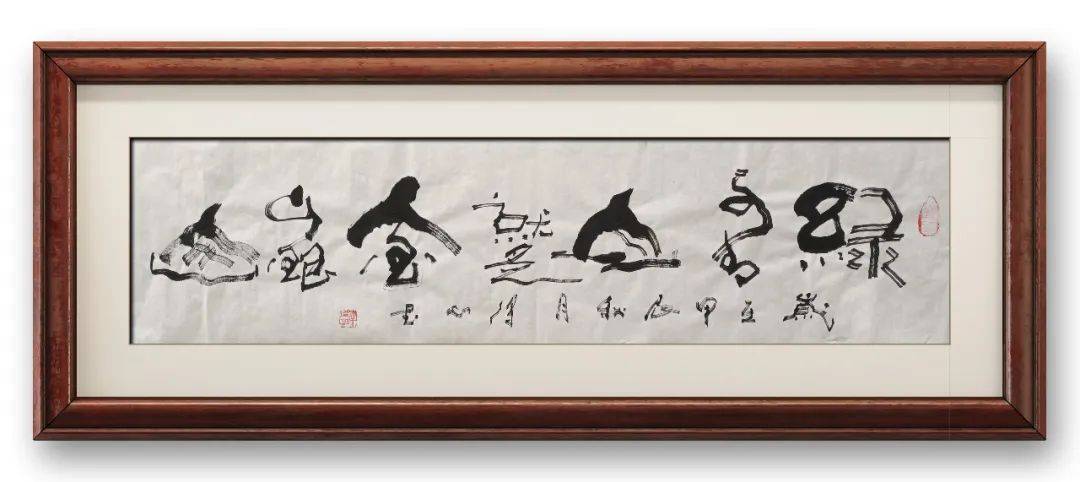 綠水青山就是金山銀山
歲在甲辰秋月心书